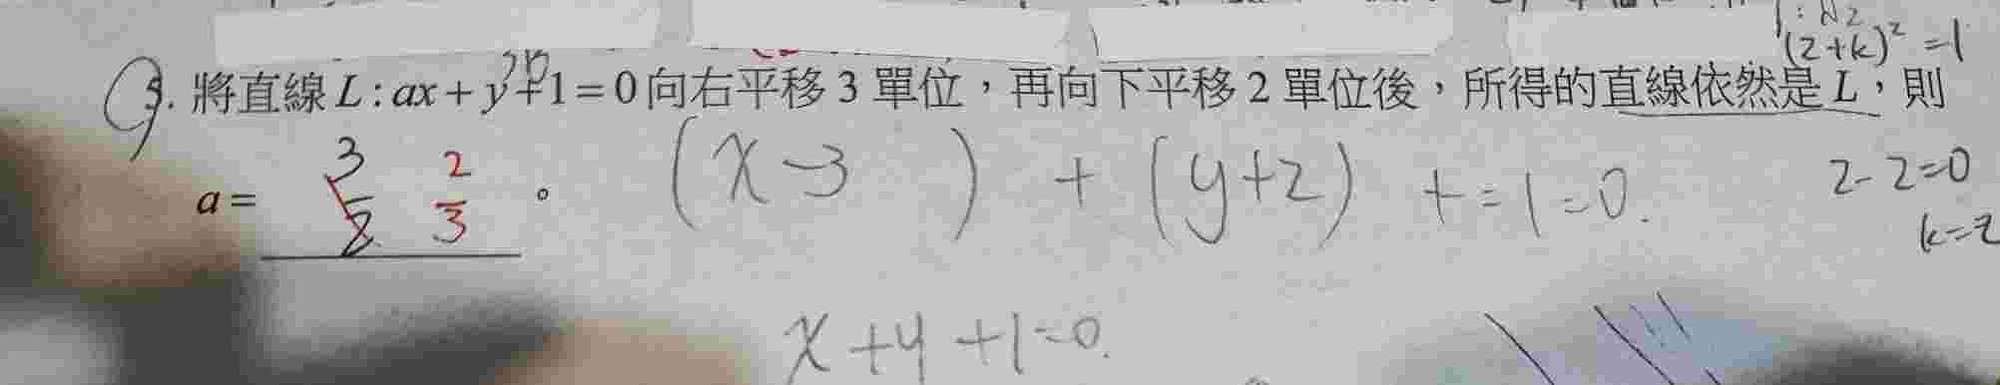 (2+k)² =1
9. 將直線 L : ax + y + 1 = 0 向右平移 3 單位，再向下平移 2 單位後，所得的直線依然是 L，則
a = 3/2 2/3 。
(x-3 ) + (y+2) +=1=0.
2-2=0
k=2
x+y+1=0.